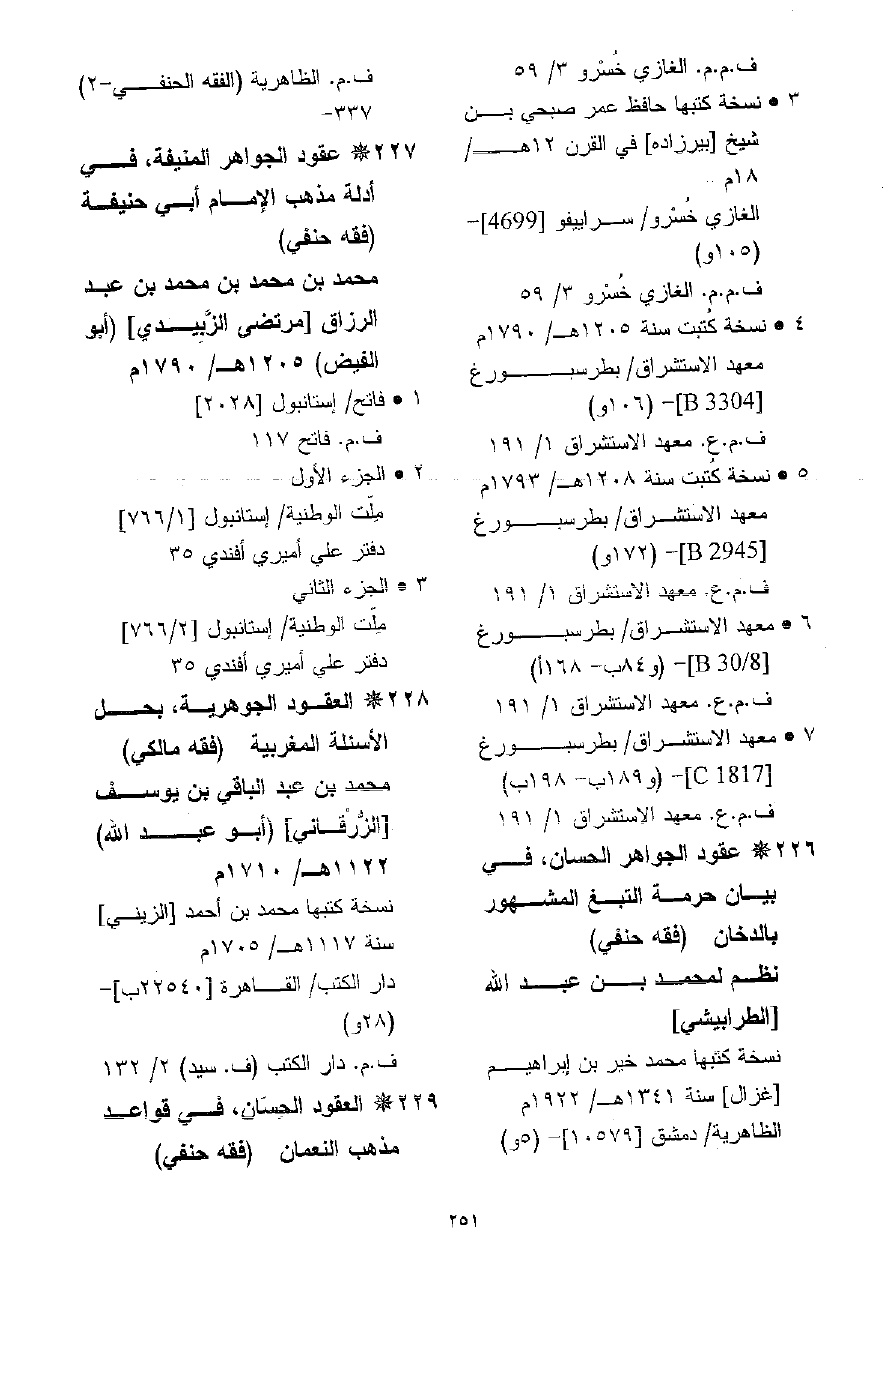 ف.م.م. الغازي خُسْرو ٣/ ٥٩
٣ • نسخة كتبها حافظ عمر صبحي بـن
شيخ [بيرزاده] في القرن ١٢هـ/
١٨م
الغازي خُسْرو/ سراييفو [4699]–
(١٠٥و)
ف.م.م. الغازي خُسْرو ٣/ ٥٩
٤ • نسخة كُتبت سنة ١٢٠٥هـ/ ١٧٩٠م
معهد الاستشراق/ بطرسبورغ
[B 3304]– (١٠٦و)
ف.م.ع. معهد الاستشراق ١/ ١٩١
٥ • نسخة كُتبت سنة ١٢٠٨هـ/ ١٧٩٣م
معهد الاستشراق/ بطرسبورغ
[B 2945]– (١٧٢و)
ف.م.ع. معهد الاستشراق ١/ ١٩١
٦ • معهد الاستشراق/ بطرسبورغ
[B 30/8]– (و٨٤ب– ١٦٨أ)
ف.م.ع. معهد الاستشراق ١/ ١٩١
٧ • معهد الاستشراق/ بطرسبورغ
[C 1817]– (و١٨٩ب– ١٩٨ب)
ف.م.ع. معهد الاستشراق ١/ ١٩١
٢٢٦ ❋ عقود الجواهر الحسان، في
بيان حرمة التبغ المشهور
بالدخان (فقه حنفي)
نظم لمحمد بن عبد الله
[الطرابيشي]
نسخة كتبها محمد خير بن إبراهيم
[غزال] سنة ١٣٤١هـ/ ١٩٢٢م
الظاهرية/ دمشق [١٠٥٧٩]– (٥و)
ف.م. الظاهرية (الفقه الحنفي–٢)
٣٣٧–
٢٢٧ ❋ عقود الجواهر المنيفة، في
أدلة مذهب الإمام أبي حنيفة
(فقه حنفي)
محمد بن محمد بن محمد بن عبد
الرزاق [مرتضى الزَّبيدي] (أبو
الفيض) ١٢٠٥هـ/ ١٧٩٠م
١ • فاتح/ إستانبول [٢٠٢٨]
ف.م. فاتح ١١٧
٢ • الجزء الأول
مِلّت الوطنية/ إستانبول [٧٦٦/١]
دفتر علي أميري أفندي ٣٥
٣ • الجزء الثاني
مِلّت الوطنية/ إستانبول [٧٦٦/٢]
دفتر علي أميري أفندي ٣٥
٢٢٨ ❋ العقود الجوهرية، بحل
الأسئلة المغربية (فقه مالكي)
محمد بن عبد الباقي بن يوسف
[الزُّرْقاني] (أبو عبد الله)
١١٢٢هـ/ ١٧١٠م
نسخة كتبها محمد بن أحمد [الزيني]
سنة ١١١٧هـ/ ١٧٠٥م
دار الكتب/ القاهرة [٢٢٥٤٠ب]–
(٢٨و)
ف.م. دار الكتب (ف. سيد) ٢/ ١٣٢
٢٢٩ ❋ العقود الحِسَان، في قواعد
مذهب النعمان (فقه حنفي)
٢٥١